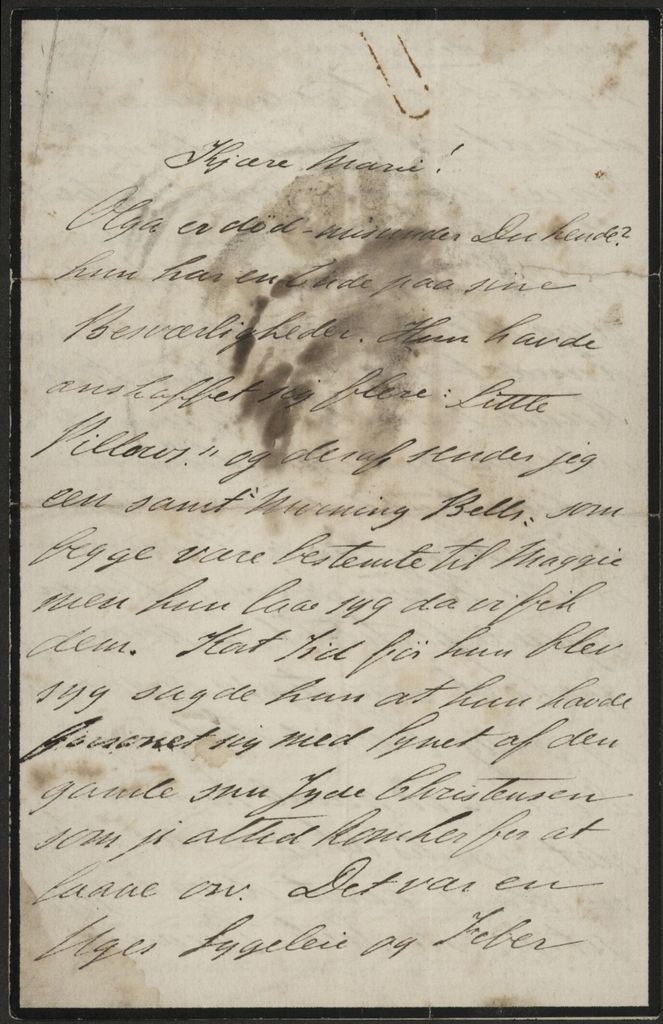 Kjære Marie!
Olga er død - misunder Du hende?
hun har en Ende paa sine
Besværligheder. Hun havde
anskaffet sig flere: Little
Pillows." og deraf sender jeg
een samt "Morning Bells", som
begge vare bestemte til Maggie
men hun laae syg da vi fik
dem. Kort Tid før hun blev
syg sagde hun at hun havde
forsonet sig med Synet af den
gamle Jyde Christensen
som jo altid kom her for at
laane Det var en
Uges Sygeleie og Feber